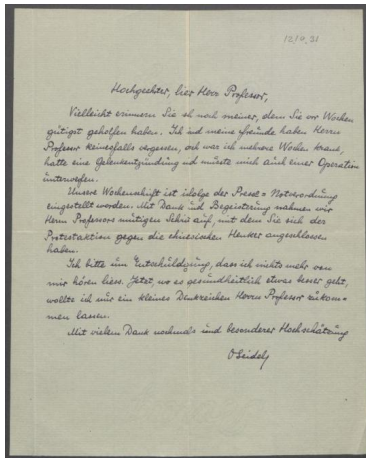 12/9.31
Hochgeehrter, lieber Herr Professor,
Vielleicht erinnern Sie sich noch meiner, dem Sie vor Wochen
gütigst geholfen haben. Ich und meine Freunde haben Herrn
Professor keinesfalls vergessen, doch war ich mehrere Wochen krank,
hatte eine Gelenkentzündung und müsste mich auch einer Operation
unterwefen.
Unsere Wochenschrift ist infolge der Presse-Notverordnung
eingestellt worden. Mit Dank und Begeisterung nahmen wir
Herrn Professors mutigen Schritt auf, mit dem Sie sich der
Protestaktion gegen die chinesischen Henker angeschlossen
haben.
Ich bitte um Entschuldigung, dass ich nichts mehr von
mir hören liess. Jetzt, wo es gesundheitlich etwas besser geht,
wollte ich nur ein kleines Denkzeichen Herrn Professor zukom-
men lassen.
Mit vielem Dank nochmals und besonderer Hochschätzung
O Seidel